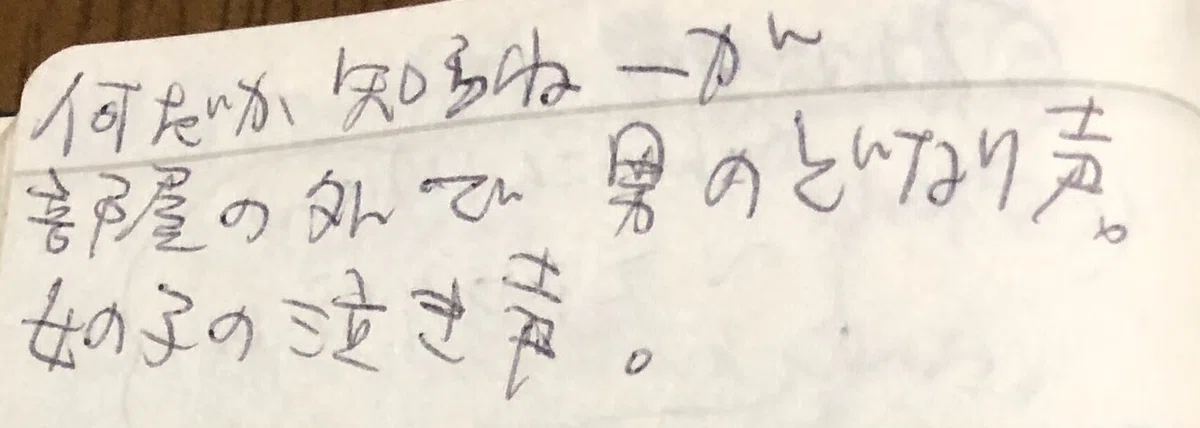 何だか知らねーが
部屋の外で男のどなり声。
女の子の泣き声。